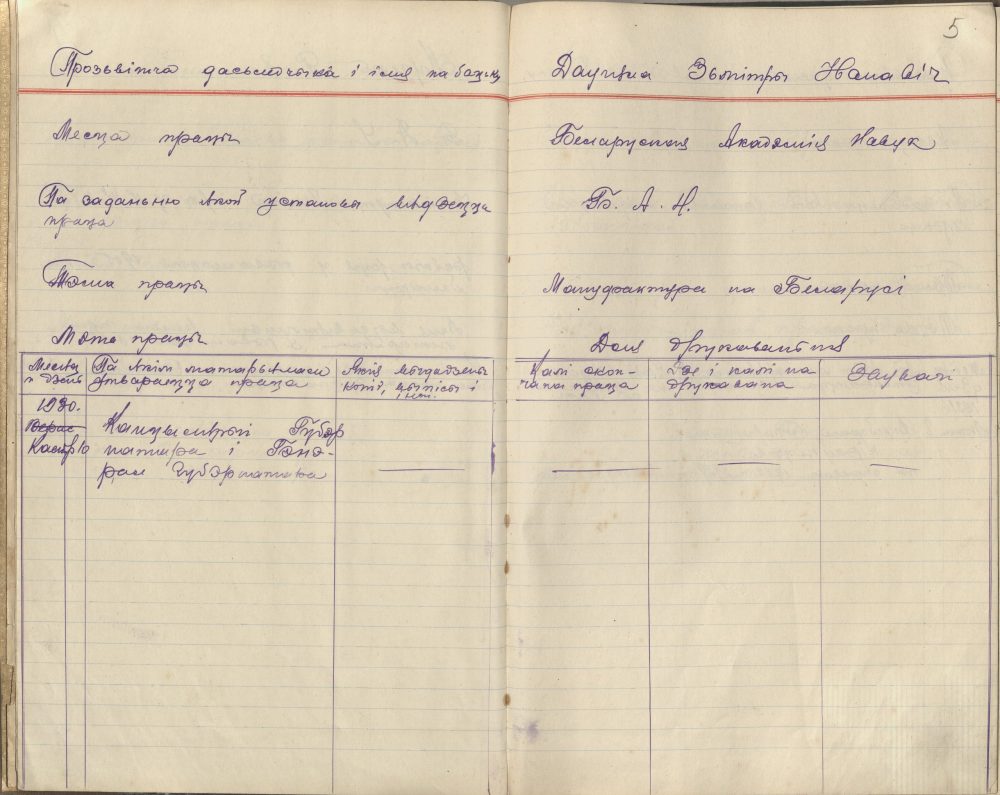 5
Прозьвішча дасьледчыка і імя па бацьку Даугяла Зьмітры Iванавіч
Месца працы Беларуская Акадэмія Навук
Па заданьню якой установы вядзецца
праца
Б. А. Н.
Тэма працы Мануфактура на Беларусі
Мэта працы Для друкаваньня
Месяц
і дзень
Па якім матар'ялам
Якія выдадзены
копіі, выпісы і
Калі скон-
чана праца
Дзе і калі на
друкавана
Заувагі
праца
1930.
Верас
Кастр 10
Канцылярыі Губэр
натара і Гэнэ-
рал Губэрнатара